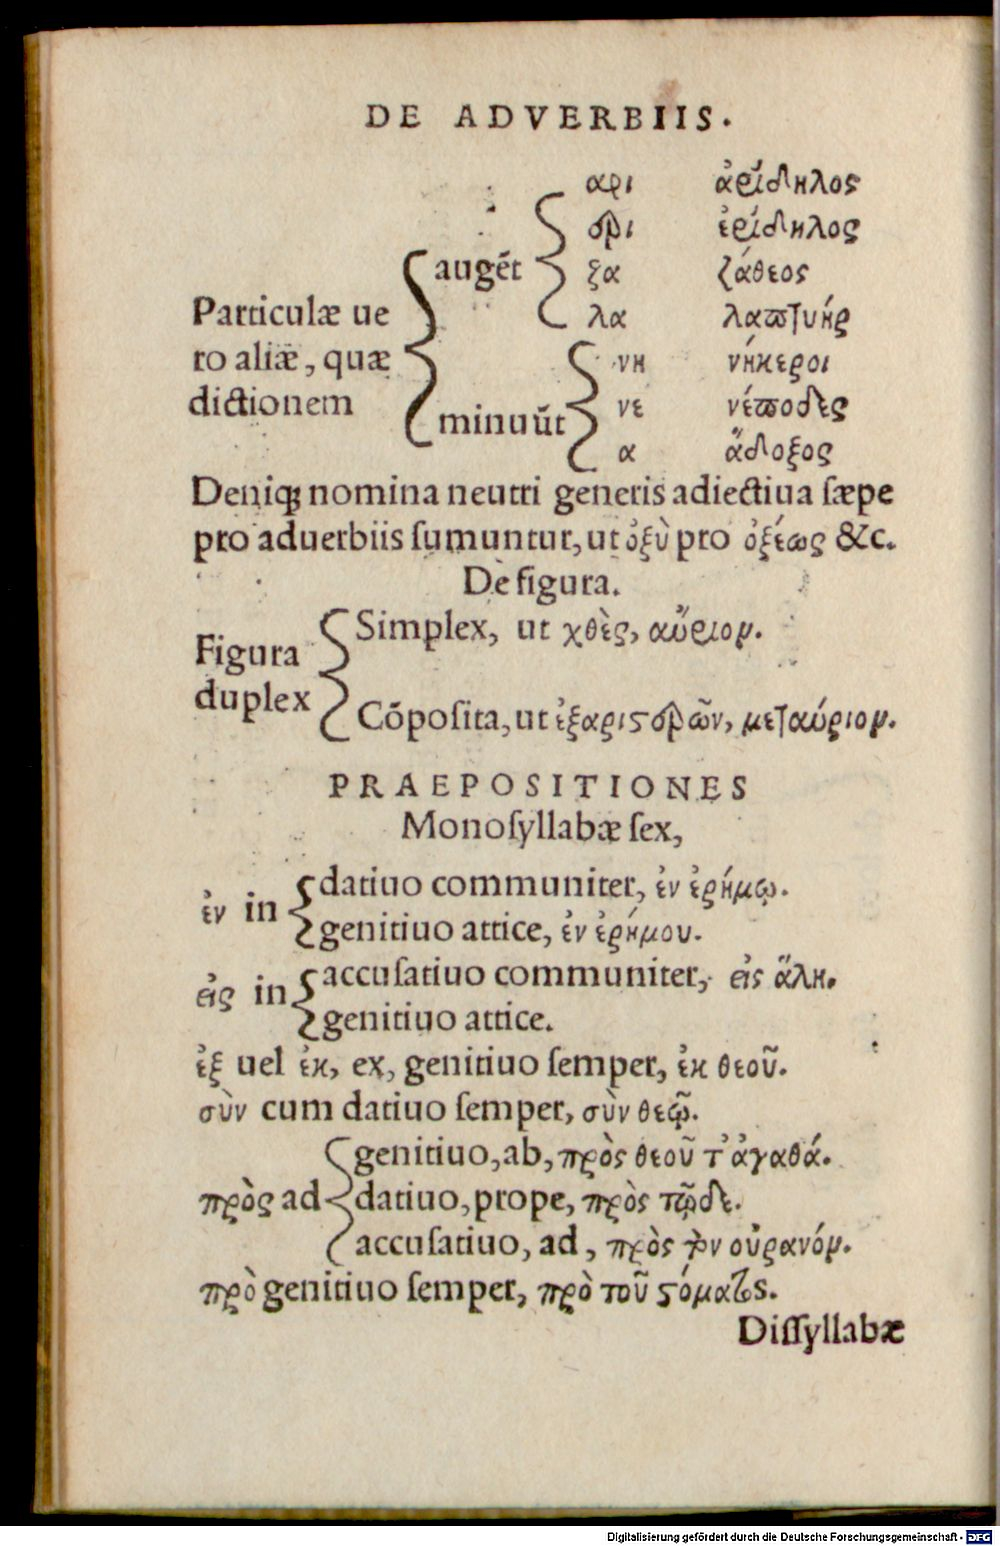 DE ADVERBIIS.
αρι ἀρίδηλος
ερι ἐρίδηλος
augēt ζα ζάθεος
Particulæ ue λα λαπτυήρ
ro aliæ, quæ νη νήκεροι
dictionem νε νέποδες
minuūt α ἄδοξος
Deniqꝫ nomina neutri generis adiectiua ſæpe
pro aduerbiis ſumuntur, ut ὀξὺ pro ὀξέως &c.
De figura.
Simplex, ut χθὲς, αὔριον.
Figura
duplex
Cōpoſita, ut ἐξαριϛερῶν, μεταύριον.
PRAEPOSITIONES
Monoſyllabæ ſex,
datiuo communiter, ἐν ἐρήμῳ.
ἐν in
genitiuo attice, ἐν ἐρήμου.
accuſatiuo communiter, εἰς ἅλη.
εἰς in
genitiuo attice.
ἐξ uel ἐκ, ex, genitiuo ſemper, ἐκ θεοῦ.
σὺν cum datiuo ſemper, σὺν θεῷ.
genitiuo, ab, πρὸς θεοῦ τ᾽ ἀγαθά.
πρὸς ad datiuo, prope, πρὸς τῷδε.
accuſatiuo, ad, πρὸς τὸν οὐρανόν.
πρὸ genitiuo ſemper, πρὸ τοῦ ϛόματος.
Diſſyllabæ
Digitalisierung gefördert durch die Deutsche Forschungsgemeinschaft - DFG